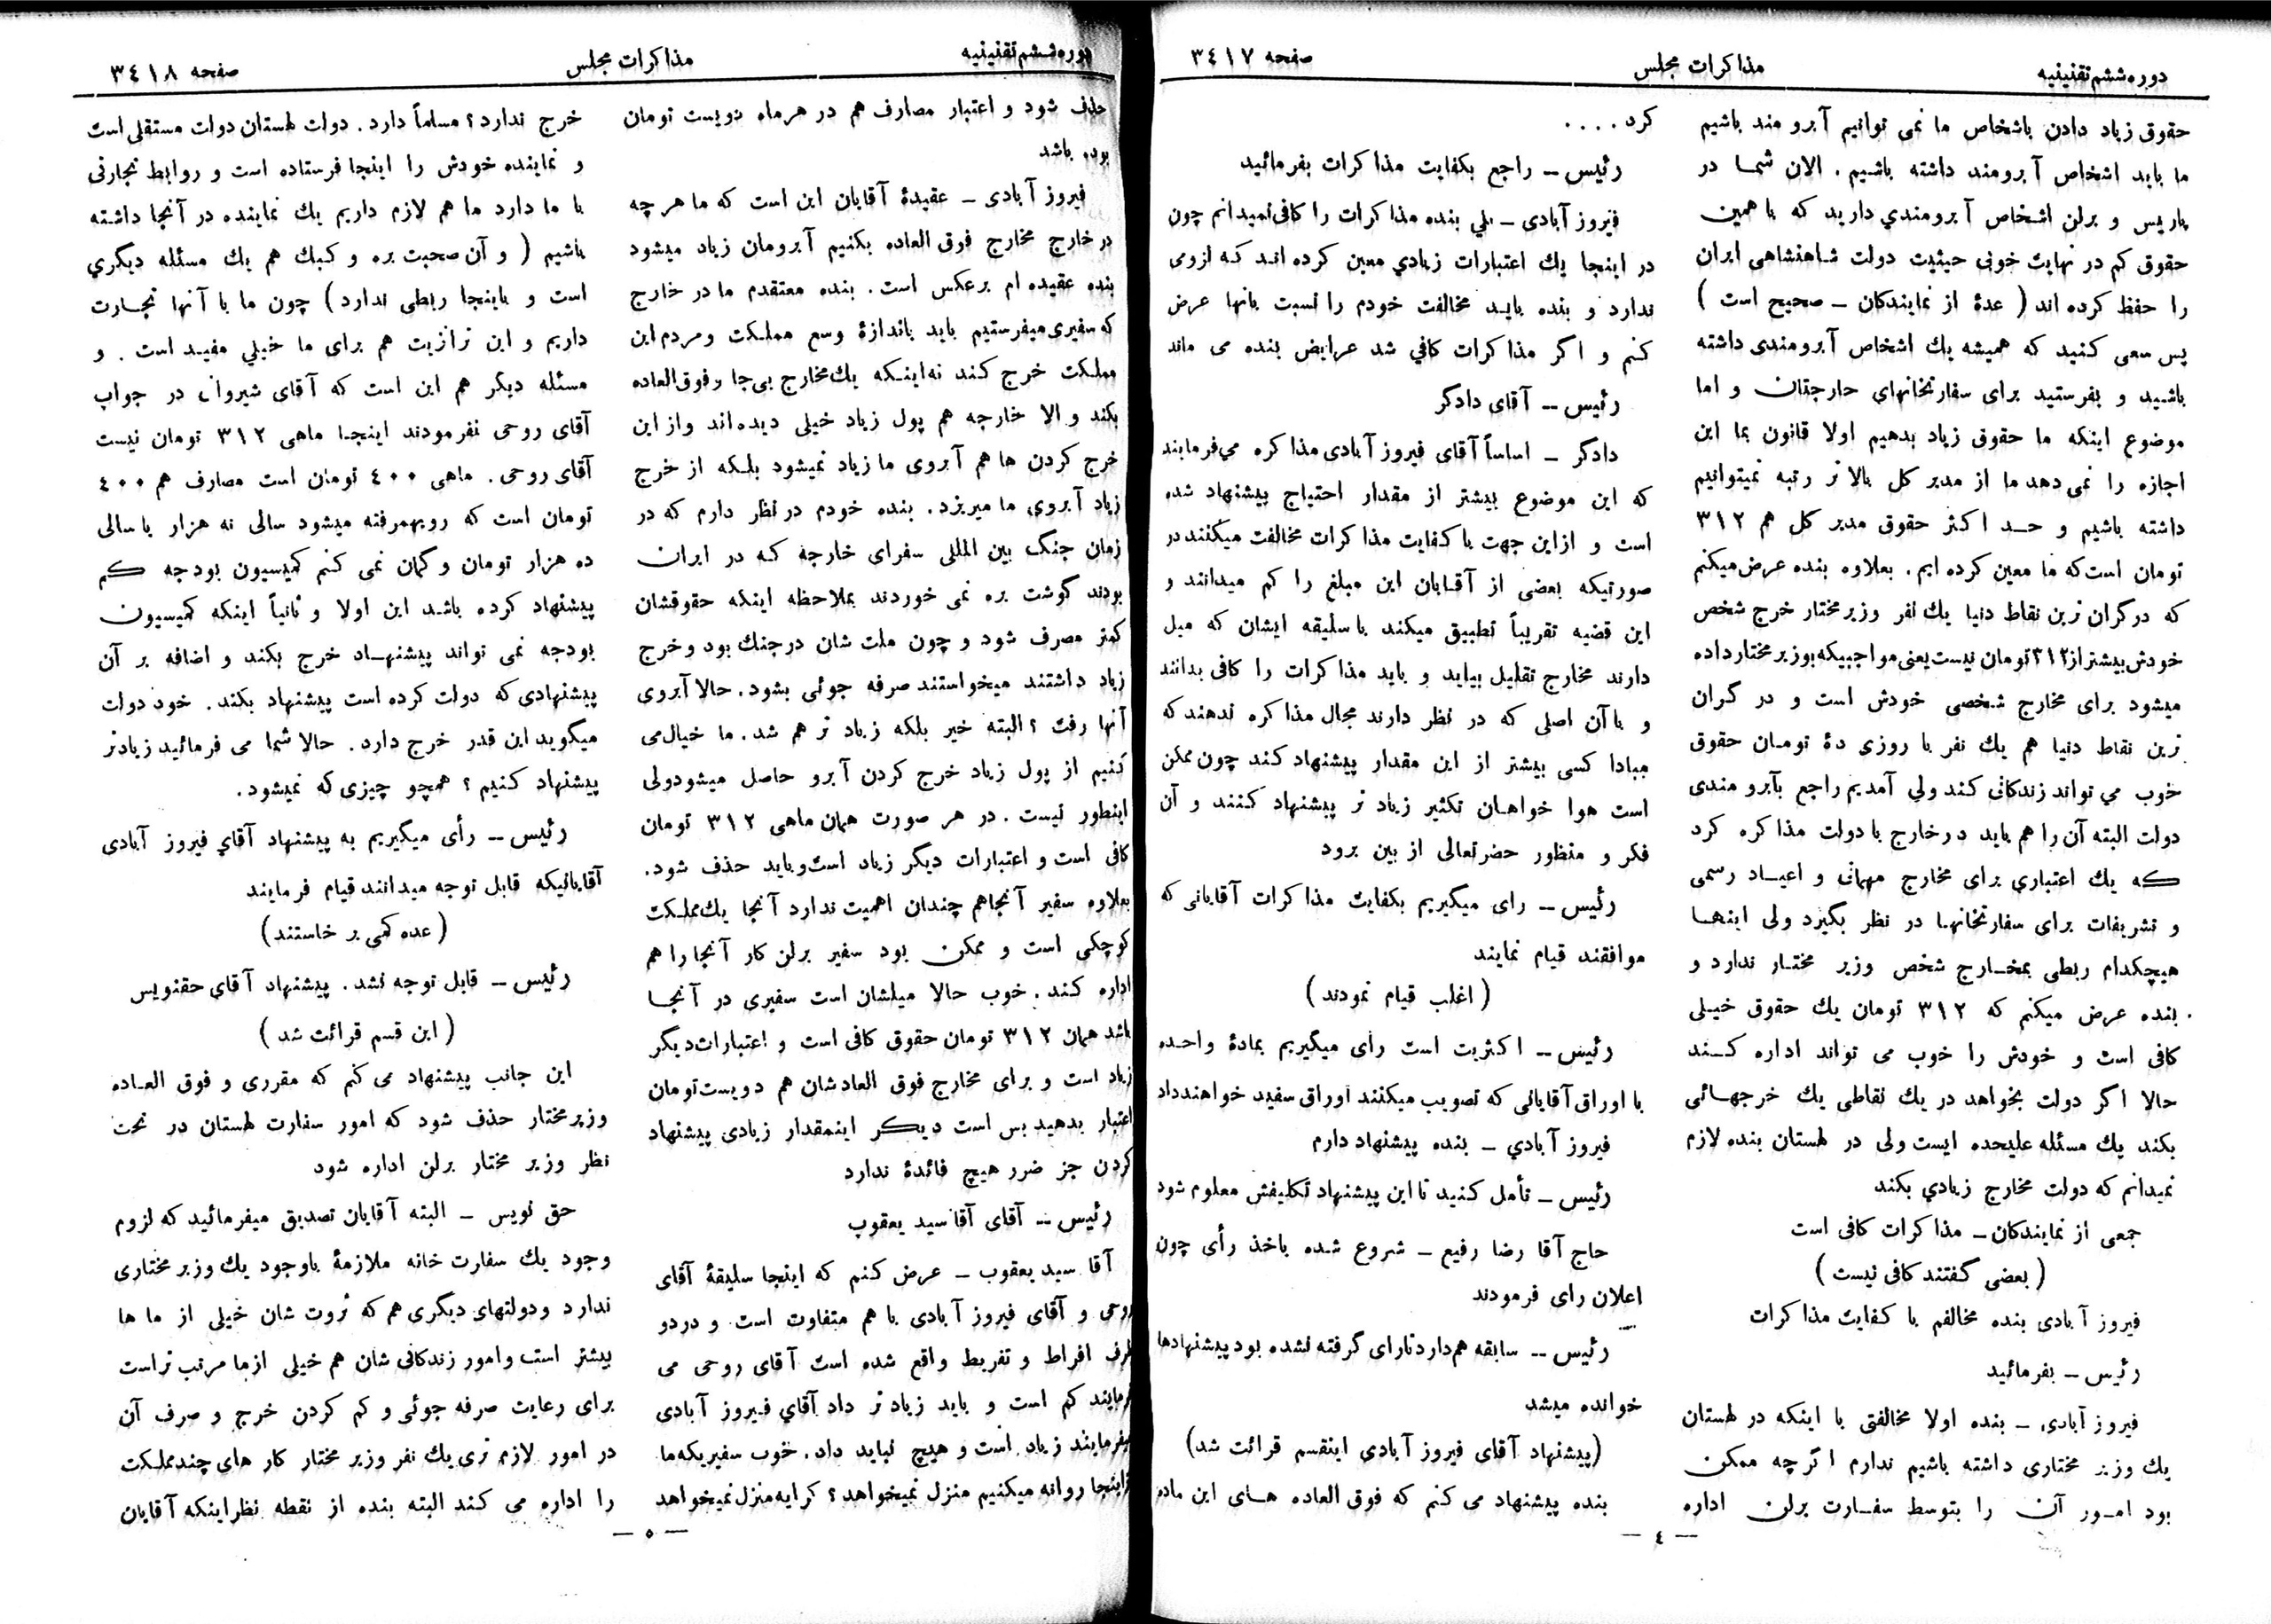 دوره ششم تقنینیه
مذاکرات مجلس
صفحه ۳٤۱۷
حقوق زیاد دادن باشخاص ما نمی توانیم آبرو مند باشیم
ما باید اشخاص آبرومند داشته باشیم . الان شما در
پاریس و برلن اشخاص آبرومندي دارید که با همین
حقوق کم در نهایت خوبی حیثیت دولت شاهنشاهی ایران
را حفظ کرده اند ( عدۀ از نمایندکان ــ صحیح است )
پس سعی کنید که همیشه یك اشخاص آبرومندی داشته
باشید و بفرستید برای سفارتخانهای خارجتان و اما
موضوع اینکه ما حقوق زیاد بدهیم اولا قانون بما این
اجازه را نمی دهد ما از مدیر کل بالا تر رتبه نمیتوانیم
داشته باشیم و حد اکثر حقوق مدیر کل هم ۳۱۲
تومان است که ما معین کرده ایم . بعلاوه بنده عرض میکنم
که در گران ترین نقاط دنیا یك نفر وزیر مختار خرج شخص
خودش بیشتر از ۳۱۲ تومان نیست یعنی مواجبیکه بوزیر مختار داده
میشود برای مخارج شخصی خودش است و در گران
ترین نقاط دنیا هم یك نفر با روزی دۀ تومان حقوق
خوب می تواند زندکانی کند ولی آمدیم راجع بآبرو مندی
دولت البته آن را هم باید در خارج با دولت مذاکره کرد
که یك اعتباری برای مخارج مهمانی و اعیاد رسمی
و تشریفات برای سفارتخانها در نظر بگیرد ولی اینها
هیچکدام ربطی بمخارج شخص وزیر مختار ندارد و
بنده عرض میکنم که ۳۱۲ تومان یك حقوق خیلی
کافی است و خودش را خوب می تواند اداره کند
حالا اگر دولت بخواهد در یك نقاطی یك خرجهائی
بکند یك مسئله علیحده ایست ولی در لهستان بنده لازم
نمیدانم که دولت مخارج زیادي بکند
جمعی از نمایندکان ــ مذاکرات کافی است
( بعضی گفتند کافی نیست )
فیروز آبادی بنده مخالفم با کفایت مذاکرات
رئیس ــ بفرمائید
فیروز آبادی ــ بنده اولا مخالفتی با اینکه در لهستان
یك وزیر مختاری داشته باشیم ندارم اگر چه ممکن
بود امور آن را بتوسط سفارت برلن اداره
کرد . . . .
رئیس ــ راجع بکفایت مذاکرات بفرمائید
فیروز آبادی ــ بلي بنده مذاکرات را کافی نمیدانم چون
در اینجا یك اعتبارات زیادي معین کرده اند که لزومی
ندارد و بنده باید مخالفت خودم را نسبت بانها عرض
کنم و اگر مذاکرات کافي شد عرایض بنده می ماند
رئیس ــ آقای دادگر
دادگر ــ اساساً آقای فیروز آبادی مذاکره می فرمایند
که این موضوع بیشتر از مقدار احتیاج پیشنهاد شده
است و ازاین جهت با کفایت مذاکرات مخالفت میکنند در
صورتیکه بعضی از آقایان این مبلغ را کم میدانند و
این قضیه تقریباً تطبیق میکند با سلیقه ایشان که میل
دارند مخارج تقلیل بیاید و باید مذاکرات را کافی بدانند
و با آن اصلی که در نظر دارند مجال مذاکره ندهند که
مبادا کسی بیشتر از این مقدار پیشنهاد کند چون ممکن
است هوا خواهان تکثیر زیاد تر پیشنهاد کنند و آن
فکر و منظور حضرتعالی از بین برود
رئیس ــ رای میگیریم بکفایت مذاکرات آقایانی که
موافقند قیام نمایند
( اغلب قیام نمودند )
رئیس ــ اکثریت است رأی میگیریم بمادۀ واحده
با اوراق آقایانی که تصویب میکنند اوراق سفید خواهند داد
فیروز آبادي ــ بنده پیشنهاد دارم
رئیس ــ تأمل کنید تا این پیشنهاد تکلیفش معلوم شود
حاج آقا رضا رفیع ــ شروع شده باخذ رأی چون
اعلان رای فرمودند
رئیس ــ سابقه هم دارد تا رای گرفته نشده بود پیشنهادها
خوانده میشد
(پیشنهاد آقای فیروز آبادی اینقسم قرائت شد)
بنده پیشنهاد می کنم که فوق العاده های این ماده
— ٤ —
دوره ششم تقنینیه
مذاکرات مجلس
صفحه ۳٤۱۸
حذف شود و اعتبار مصارف هم در هرماه دویست تومان
بوده باشد
فیروز آبادی ــ عقیدۀ آقایان این است که ما هر چه
در خارج مخارج فوق العاده بکنیم آبرومان زیاد میشود
بنده عقیده ام برعکس است . بنده معتقدم ما در خارج
که سفیری میفرستیم باید باندازۀ وسع مملکت و مردم این
مملکت خرج کند نه اینکه یك مخارج بی جا و فوق العاده
بکند و الا خارجه هم پول زیاد خیلی دیده اند و از این
خرج کردن ها هم آبروی ما زیاد نمیشود بلکه از خرج
زیاد آبروی ما میریزد . بنده خودم در نظر دارم که در
زمان جنگ بین المللی سفرای خارجه که در ایران
بودند گوشت بره نمی خوردند بملاحظه اینکه حقوقشان
کمتر مصرف شود و چون ملت شان در جنك بود و خرج
زیاد داشتند میخواستند صرفه جوئی بشود . حالا آبروی
آنها رفت ؟ البته خیر بلکه زیاد تر هم شد . ما خیال می
کنیم از پول زیاد خرج کردن آبرو حاصل میشود ولی
اینطور نیست . در هر صورت همان ماهی ۳۱۲ تومان
کافی است و اعتبارات دیگر زیاد است و باید حذف شود .
بعلاوه سفیر آنجاهم چندان اهمیت ندارد آنجا یك مملکت
کوچکی است و ممکن بود سفیر برلن کار آنجا را هم
اداره کند . خوب حالا میلشان است سفیری در آنجا
باشد همان ۳۱۲ تومان حقوق کافی است و اعتبارات دیگر
زیاد است و برای مخارج فوق العادشان هم دویست تومان
اعتبار بدهید بس است دیگر اینمقدار زیادی پیشنهاد
کردن جز ضرر هیچ فائدۀ ندارد
رئیس ــ آقای آقا سید یعقوب
آقا سید یعقوب ــ عرض کنم که اینجا سلیقۀ آقای
روحی و آقای فیروز آبادی با هم متفاوت است و در دو
طرف افراط و تفریط واقع شده است آقای روحی می
فرمایند کم است و باید زیاد تر داد آقاي فیروز آبادی
میفرمایند زیاد است و هیچ نباید داد . خوب سفیریکه ما
از اینجا روانه میکنیم منزل نمیخواهد ؟ کرایه منزل نمیخواهد
خرج ندارد ؟ مسلماً دارد . دولت لهستان دولت مستقلی است
و نماینده خودش را اینجا فرستاده است و روابط تجارتی
با ما دارد ما هم لازم داریم یك نماینده در آنجا داشته
باشیم ( و آن صحبت بره و کبك هم یك مسئله دیگري
است و باینجا ربطی ندارد ) چون ما با آنها تجارت
داریم و این ترازیت هم برای ما خیلي مفید است . و
مسئله دیگر هم این است که آقای شیروانی در جواب
آقای روحی نفرمودند اینجا ماهی ۳۱۲ تومان نیست
آقای روحی . ماهی ٤۰۰ تومان است مصارف هم ٤۰۰
تومان است که رویهمرفته میشود سالی نه هزار یا سالی
ده هزار تومان و گمان نمی کنم کمیسیون بودجه کم
پیشنهاد کرده باشد این اولا و ثانیاً اینکه کمیسیون
بودجه نمی تواند پیشنهاد خرج بکند و اضافه بر آن
پیشنهادی که دولت کرده است پیشنهاد بکند . خود دولت
میگوید این قدر خرج دارد . حالا شما می فرمائید زیادتر
پیشنهاد کنیم ؟ همچو چیزی که نمیشود .
رئیس ــ رأی میگیریم به پیشنهاد آقاي فیروز آبادی
آقایانیکه قابل توجه میدانند قیام فرمایند
( عده کمی بر خاستند )
رئیس ــ قابل توجه نشد . پیشنهاد آقاي حقنویس
( این قسم قرائت شد )
این جانب پیشنهاد می کنم که مقرری و فوق العاده
وزیر مختار حذف شود که امور سفارت لهستان در تحت
نظر وزیر مختار برلن اداره شود
حق نویس ــ البته آقایان تصدیق میفرمائید که لزوم
وجود یك سفارت خانه ملازمۀ باوجود یك وزیر مختاری
ندارد و دولتهای دیگری هم که ثروت شان خیلی از ما ها
بیشتر است و امور زندکانی شان هم خیلی ازما مرتب تر است
برای رعایت صرفه جوئی و کم کردن خرج و صرف آن
در امور لازم تری یك نفر وزیر مختار کار های چند مملکت
را اداره می کند البته بنده از نقطه نظر اینکه آقایان
— ٥ —